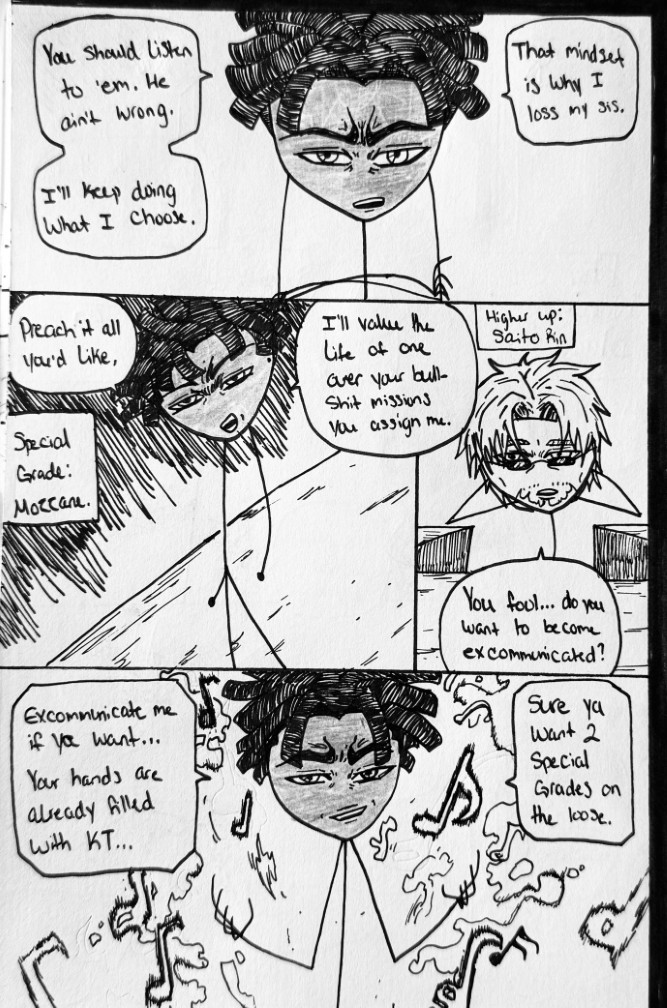 You should listen
to 'em. He
ain't wrong.
I'll keep doing
what I choose.
That mindset
is why I
loss my sis.
Preach it all
you'd like,
I'll value the
life of one
over your bull-
shit missions
you assign me.
Special
Grade:
Mozzane.
Higher up:
Saito Rin
You foul... do you
want to become
excommunicated?
Excommunicate me
if you want...
Your hands are
already filled
with KT...
Sure ya
want 2
Special
Grades on
the loose.